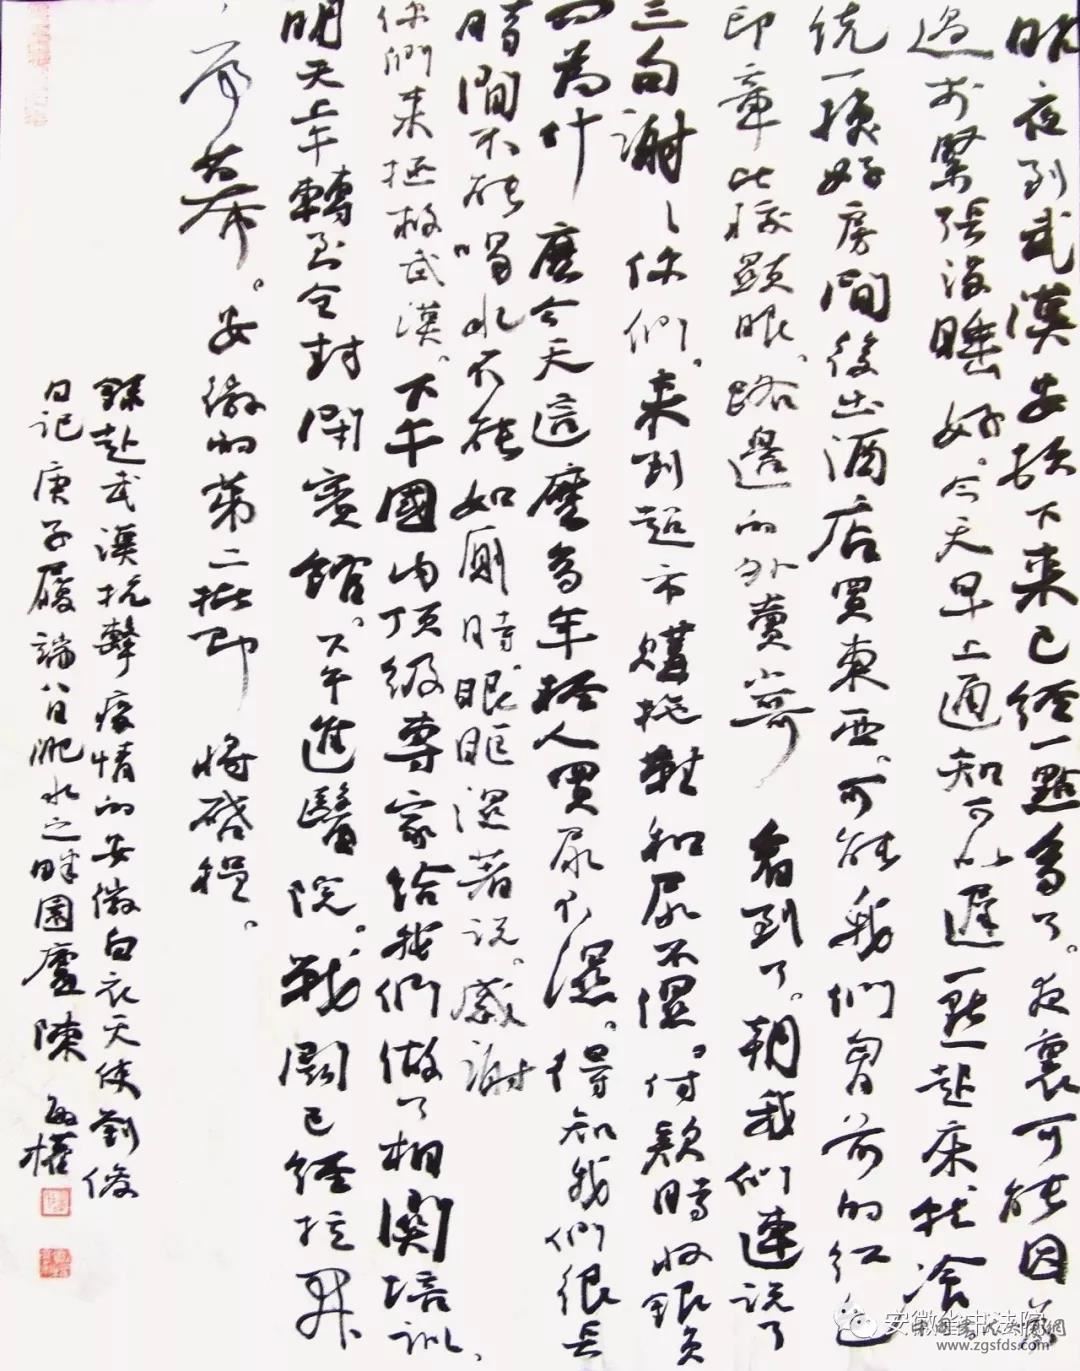 昨夜到武漢安頓下來已經一點多了。夜裏可能因為
過於緊張没睡好。今天早上通知可以遲一點起床就餐
統一換好房間後出酒店買東西。可能我們胸前的紅色
印章比較顯眼。路邊的外賣小哥看到了。朝我們連說了
三句謝謝你們。來到超市購拖鞋和尿不濕。付款時收銀員
問為什麼今天這麼多年輕人買尿不濕。得知我們很長
時間不能喝水不能如厕時眼眶濕著说。感谢
你們来拯救武漢。下午國内頂级專家给我們做了相關培训。
明天上午轉至全封閉賓館。下午進醫院。戰鬭已經拉開
序幕。安徽的第二批即将啓程。
録赴武漢抗擊疫情的安徽白衣天使劉俊
日记庚子履端八日淝水之畔園廬陳
安徽华书法院
www.zgsfds.com